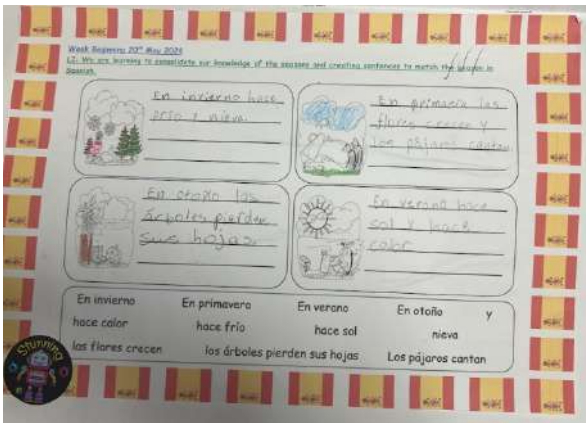 Week Beginning 20th May 2024
LI: We are learning to consolidate our knowledge of the seasons and creating sentences to match the season in
Spanish.
En invierno hace
frío y nieva.
En primavera las
flores crecen y
los pájaros cantan
En otoño las
árboles pierden
sus hojas.
En verano hace
sol y hace
calor
En invierno En primavera En verano En otoño y
hace calor hace frío hace sol nieva
las flores crecen los árboles pierden sus hojas Los pájaros cantan
Stunning